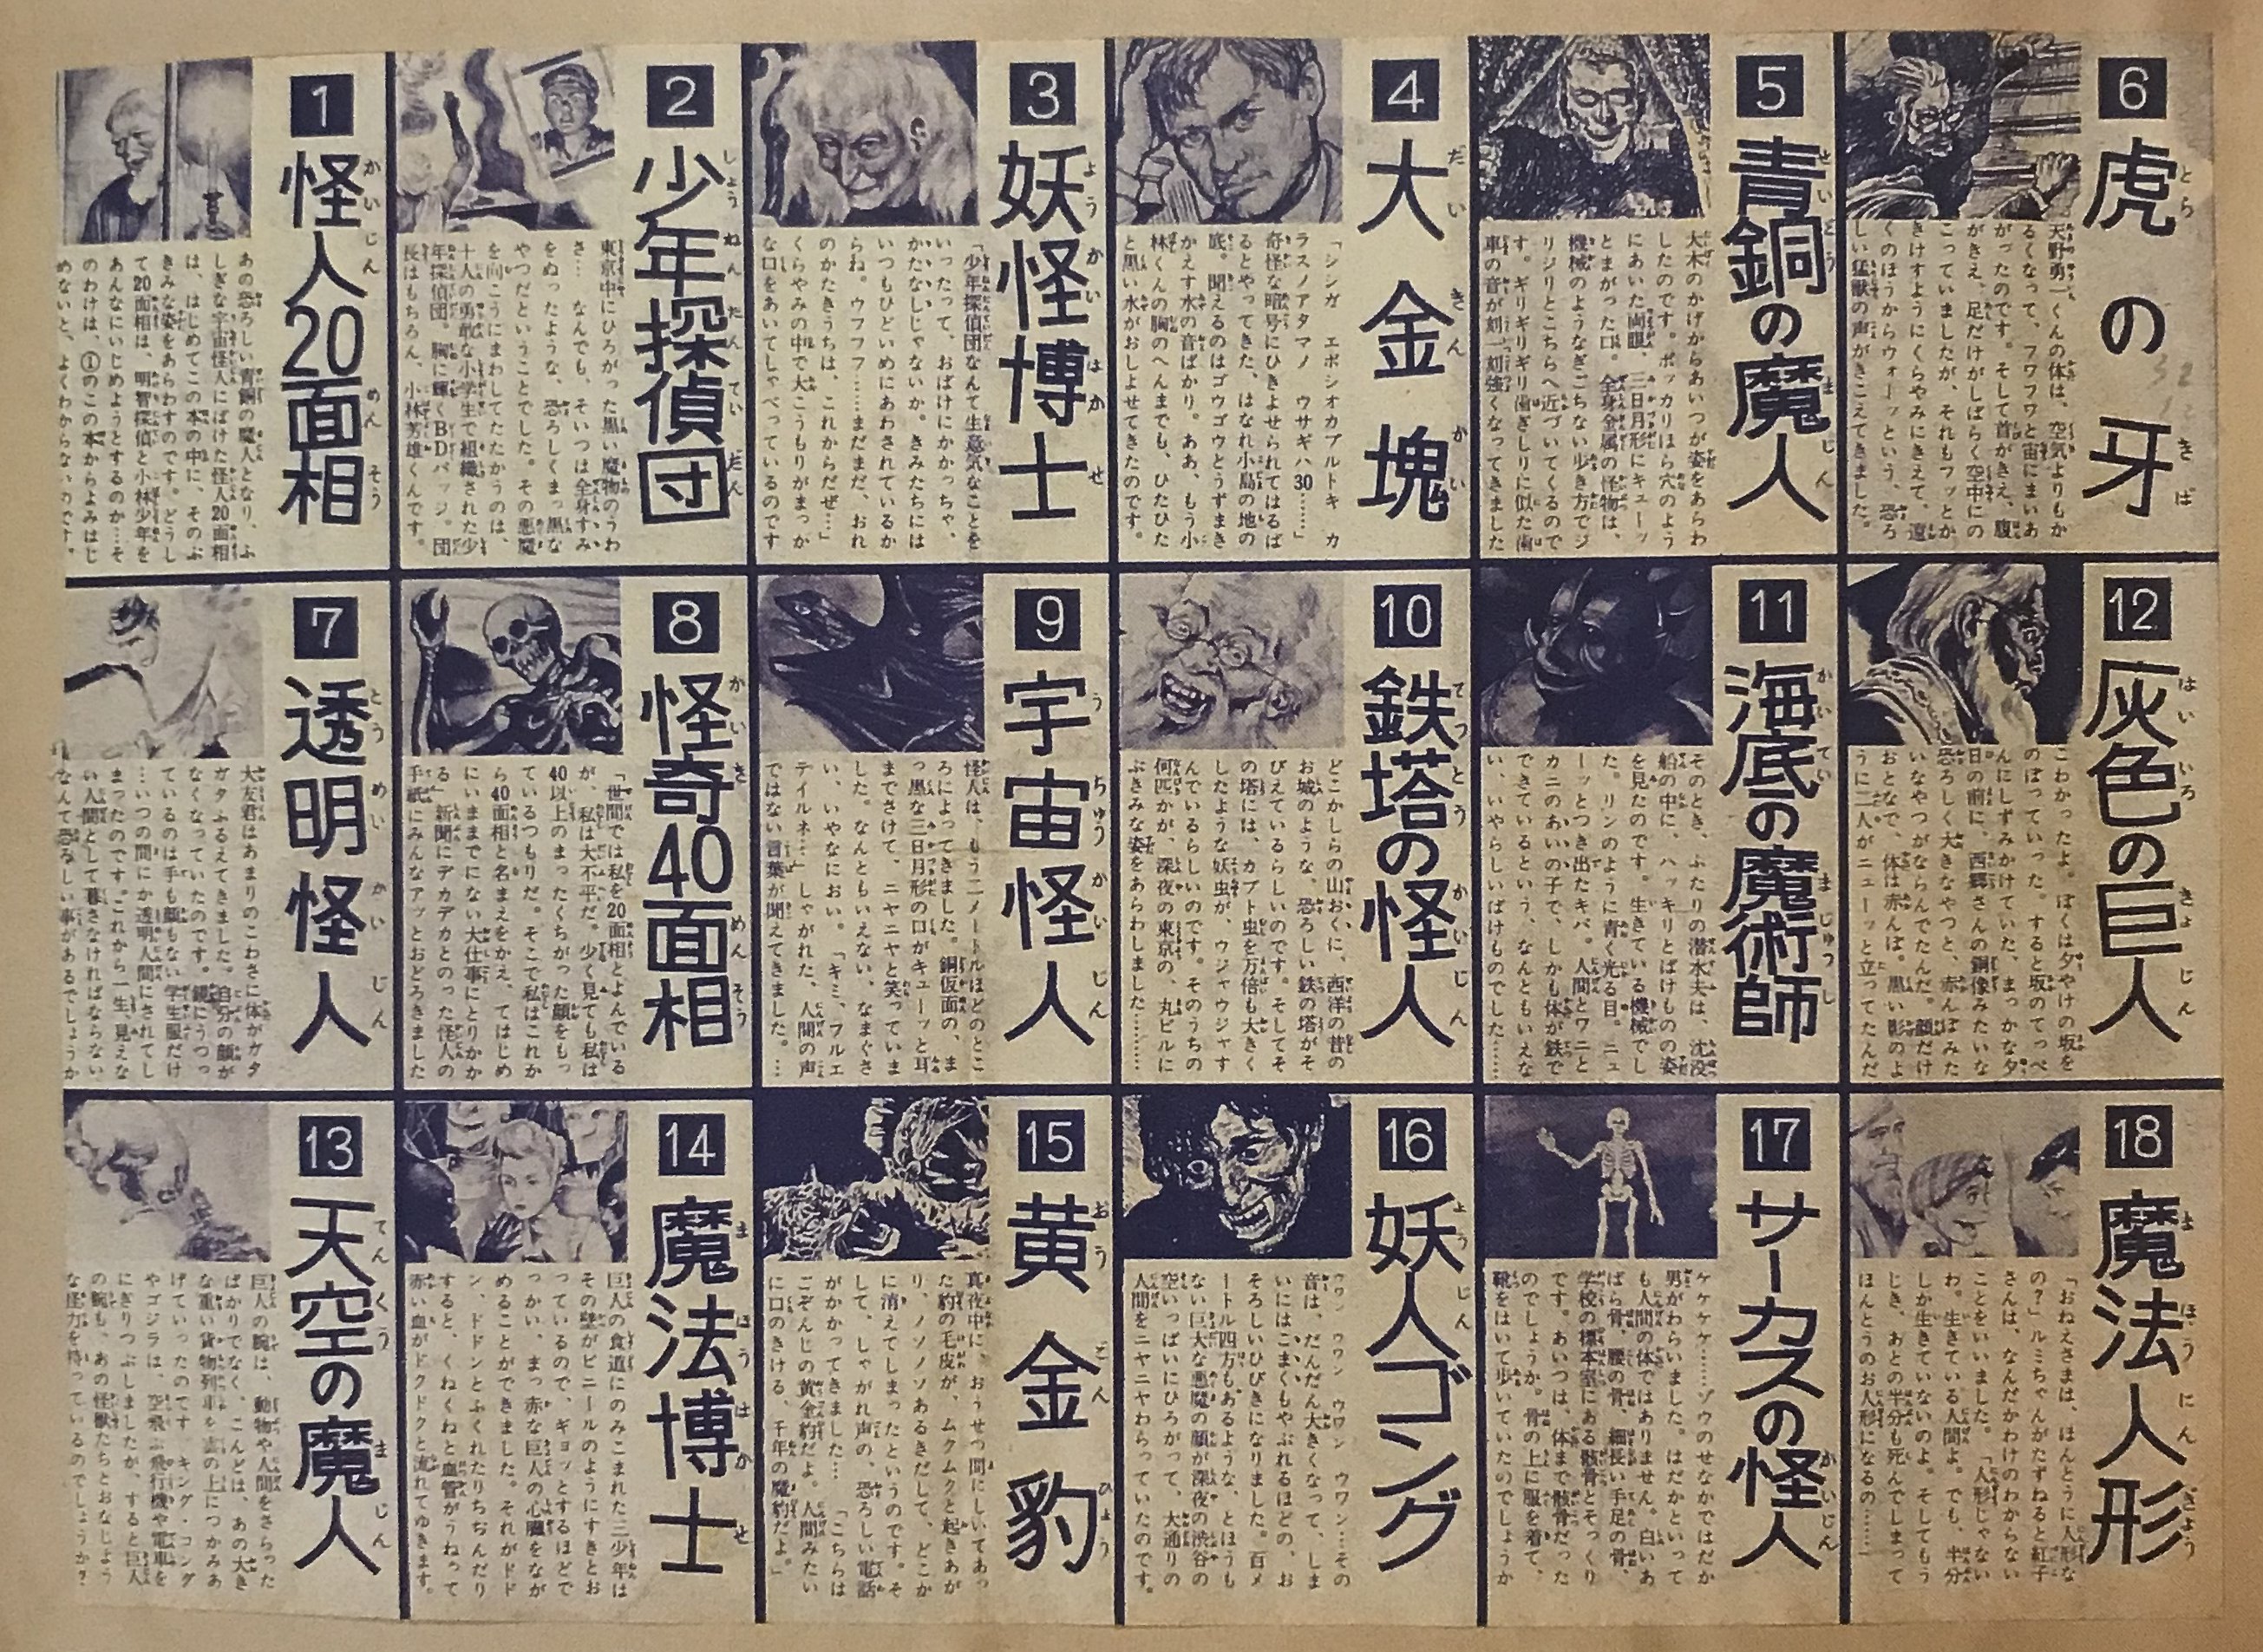 1
怪人20面相
かいじんめんそう
あの恐ろしい青銅の魔人となり、ふ
しぎな宇宙怪人にばけた怪人20面相
は、はじめてこの本の中に、そのぶ
きみな姿をあらわすのです。どうし
て20面相は、明智探偵と小林少年を
あんなにいじめようとするのか…そ
のわけは、①のこの本からよみはじ
めないと、よくわからないのです。
2
少年探偵団
しょうねんたんていだん
東京中にひろがった黒い魔物のうわ
さ… なんでも、そいつは全身すみ
をぬったような、恐ろしくまっ黒な
やつだということでした。その悪魔
を向こうにまわしてたたかうのは、
十人の勇敢な小学生で組織された少
年探偵団。胸に輝くBDバッジ。団
長はもちろん、小林芳雄くんです。
3
妖怪博士
ようかいはかせ
「少年探偵団なんて生意気なことを
いったって、おばけにかかっちゃ、
かたなしじゃないか。きみたちには
いつもひどいめにあわされているか
らね。ウフフフ……まだまだ、おれ
のかたきうちは、これからだぜ…」
くらやみの中で大こうもりがまっか
な口をあいてしゃべっているのです
4
大金塊
だいきんかい
「シシガ エボシオカブルトキ カ
ラスノアタマノ ウサギハ30……」
奇怪な暗号にひきよせられてはるば
るとやってきた、はなれ小島の地の
底。聞えるのはゴウゴウとうずまき
かえす水の音ばかり。ああ、もう小
林くんの胸のへんまでも、ひたひた
と黒い水がおしよせてきたのです。
5
青銅の魔人
せいどうまじん
大木のかげからあいつが姿をあらわ
したのです。ポッカリほら穴のよう
にあいた両眼、三日月形にキューッ
とまがった口。全身金属の怪物は、
機械のようなぎごちない歩き方でジ
リジリとこちらへ近づいてくるので
す。ギリギリギリ歯ぎしりに似た歯
車の音が刻一刻強くなってきました
6
虎の牙
とらきば
天野勇一くんの体は、空気よりもか
るくなって、フワフワと宙にまいあ
がったのです。そして首がきえ、腹
がきえ、足だけがしばらく空中にの
こっていましたが、それもフッとか
きけすようにくらやみにきえて、遠
くのほうからウォーッという、恐ろ
しい猛獣の声がきこえてきました。
7
透明怪人
とうめいかいじん
大友君はあまりのこわさに体がガタ
ガタふるえてきました。自分の顔が
なくなっていたのです。鏡にうつっ
ているのは手も顔もない学生服だけ
…いつの間にか透明人間にされてし
まったのです。これから一生、見えな
い人間として暮さなければならない
なんて恐ろしい事があるでしょうか
8
怪奇40面相
かいきめんそう
「世間では私を20面相とよんでいる
が、私は大不平だ。少く見ても私は
40以上のまったくちがった顔をもっ
ているつもりだ。そこで私はこれか
ら40面相と名まえをかえ、てはじめ
にいままでにない大仕事にとりかか
る」新聞にデカデカとのった怪人の
手紙にみんなアッとおどろきました
9
宇宙怪人
うちゅうかいじん
怪人は、もう二メートルほどのとこ
ろによってきました。銅仮面の、ま
っ黒な三日月形の口がキューッと耳
までさけて、ニヤニヤと笑っていま
した。なんともいえない、なまぐさ
い、いやなにおい。「キミ、フルエ
テイルネ…」しゃがれた、人間の声
ではない言葉が聞えてきました。…
10
鉄塔の怪人
てっとうかいじん
どこかしらの山おくに、西洋の昔の
お城のような、恐ろしい鉄の塔がそ
びえているらしいのです。そしてそ
の塔には、カブト虫を万倍も大きく
したような妖虫が、ウジャウジャす
んでいるらしいのです。そのうちの
何匹かが、深夜の東京の、丸ビルに
ぶきみな姿をあらわしました………
11
海底の魔術師
かいていまじゅつし
そのとき、ふたりの潜水夫は、沈没
船の中に、ハッキリとばけものの姿
を見たのです。生きている機械でし
た。リンのように青く光る目。ニュ
ーッとつき出たキバ。人間とワニと
カニのあいの子で、しかも体が鉄で
できているという、なんともいえな
い、いやらしいばけものでした……
12
灰色の巨人
はいいろきょじん
こわかったよ。ぼくは夕やけの坂を
のぼっていった。すると坂のてっぺ
んにしずみかけていた、まっかな夕
日の前に、西郷さんの銅像みたいな
恐ろしく大きなやつと、赤んぼみた
いなやつがならんでたんだ。顔だけ
おとなで、体は赤んぼ。黒い影のよ
うに二人がニューッと立ってたんだ
13
天空の魔人
てんくうまじん
巨人の腕は、動物や人間をさらった
ばかりでなく、こんどは、あの大き
な重い貨物列車を雲の上につかみあ
げていったのです キング・コング
やゴジラは、空飛ぶ飛行機や電車を
にぎりつぶしましたが、すると巨人
の腕も、あの怪獣たちとおなじよう
な怪力を持っているのでしょうか？
14
魔法博士
まほうはかせ
巨人の食道にのみこまれた三少年は
その壁がビニールのようにすきとお
っているので、ギョッとするほどで
っかい、まっ赤な巨人の心臓をなが
めることができました。それがドド
ン、ドドンとふくれたりちぢんだり
すると、くねくねと血管がうねって
赤い血がドクドクと流れてゆきます。
15
黄金豹
おうごんひょう
真夜中に、おうせつ間にしいてあっ
た豹の毛皮が、ムクムクと起きあが
り、ノソノソあるきだして、どこか
に消えてしまったというのです。そ
して、しゃがれ声の、恐ろしい電話
がかかってきました… 「こちらは
ごぞんじの黄金豹だよ。人間みたい
に口のきける、千年の魔豹だよ。」
16
妖人ゴング
ようじん
ウワン ウワン ウワン ウワン…その
音は、だんだん大きくなって、しま
いにはこまくもやぶれるほどの、お
そろしいひびきになりました。百メ
ートル四方もあるような、とほうも
ない巨大な悪魔の顔が深夜の渋谷の
空いっぱいにひろがって、大通りの
人間をニヤニヤわらっていたのです。
17
サーカスの怪人
かいじん
ケケケケ……ゾウのせなかではだか
男がわらいました。はだかといって
も人間の体ではありません。白いあ
ばら骨、腰の骨、細長い手足の骨、
学校の標本室にある骸骨とそっくり
です。あいつは、体まで骸骨だった
のでしょうか。骨の上に服を着て、
靴をはいて歩いていたのでしょうか
18
魔法人形
まほうにんぎょう
「おねえさまは、ほんとうに人形な
の？」ルミちゃんがたずねると紅子
さんは、なんだかわけのわからない
ことをいいました。「人形じゃない
わ。生きている人間よ。でも、半分
しか生きていないのよ。そしてもう
じき、あとの半分も死んでしまって
ほんとうのお人形になるの……」